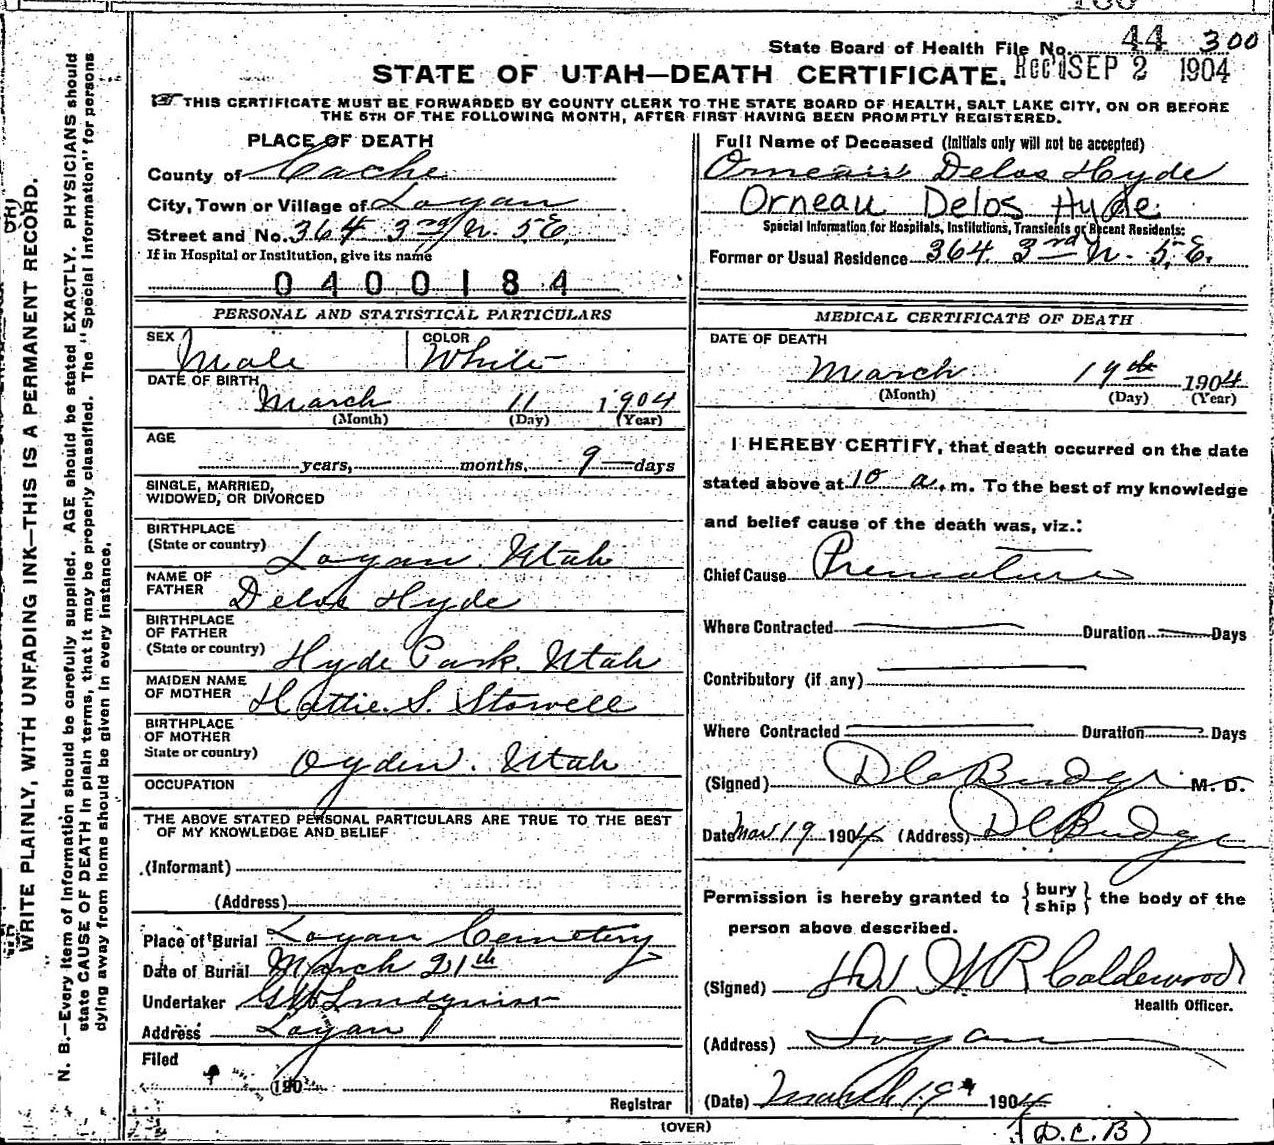 State Board of Health File No. 44 300
STATE OF UTAH—DEATH CERTIFICATE. Rec'd SEP 2 1904
THIS CERTIFICATE MUST BE FORWARDED BY COUNTY CLERK TO THE STATE BOARD OF HEALTH, SALT LAKE CITY, ON OR BEFORE
THE 5TH OF THE FOLLOWING MONTH, AFTER FIRST HAVING BEEN PROMPTLY REGISTERED.
WRITE PLAINLY, WITH UNFADING INK—THIS IS A PERMANENT RECORD.
N. B.—Every item of information should be carefully supplied. AGE should be stated EXACTLY. PHYSICIANS should
state CAUSE OF DEATH in plain terms, that it may be properly classified. The "Special Information" for persons
dying away from home should be given in every instance.
PLACE OF DEATH
County of Cache
City, Town or Village of Logan
Street and No. 364 3rd N. 5 E.
If in Hospital or Institution, give its name
0400184
PERSONAL AND STATISTICAL PARTICULARS
SEX Male COLOR White
DATE OF BIRTH March 11 1904
(Month) (Day) (Year)
AGE
years, months, 9 days
SINGLE, MARRIED,
WIDOWED, OR DIVORCED
BIRTHPLACE
(State or country) Logan, Utah
NAME OF
FATHER Delos Hyde
BIRTHPLACE
OF FATHER
(State or country) Hyde Park, Utah
MAIDEN NAME
OF MOTHER Hattie S. Stowell
BIRTHPLACE
OF MOTHER
State or country) Ogden, Utah
OCCUPATION
THE ABOVE STATED PERSONAL PARTICULARS ARE TRUE TO THE BEST
OF MY KNOWLEDGE AND BELIEF
(Informant)
(Address)
Place of Burial Logan Cemetery
Date of Burial March 21th
Undertaker Lindquist
Address Logan
Filed
190
Registrar
Full Name of Deceased (Initials only will not be accepted)
Delos Hyde
Orneau Delos Hyde
Special Information for Hospitals, Institutions, Transients or Recent Residents:
Former or Usual Residence 364 3rd N. 5 E.
MEDICAL CERTIFICATE OF DEATH
DATE OF DEATH
March 19th 1904
(Month) (Day) (Year)
I HEREBY CERTIFY, that death occurred on the date
stated above at 10 a. m. To the best of my knowledge
and belief cause of the death was, viz.:
Chief Cause Premature
Where Contracted Duration Days
Contributory (if any)
Where Contracted Duration Days
(Signed) D C Budge M. D.
Date Mar 19 1904 (Address) D C Budge
Permission is hereby granted to { bury ship } the body of the
person above described.
(Signed) W R Calderwood
Health Officer.
(Address) Logan
(Date) March 19 1904
(OVER)
(D.C.B)